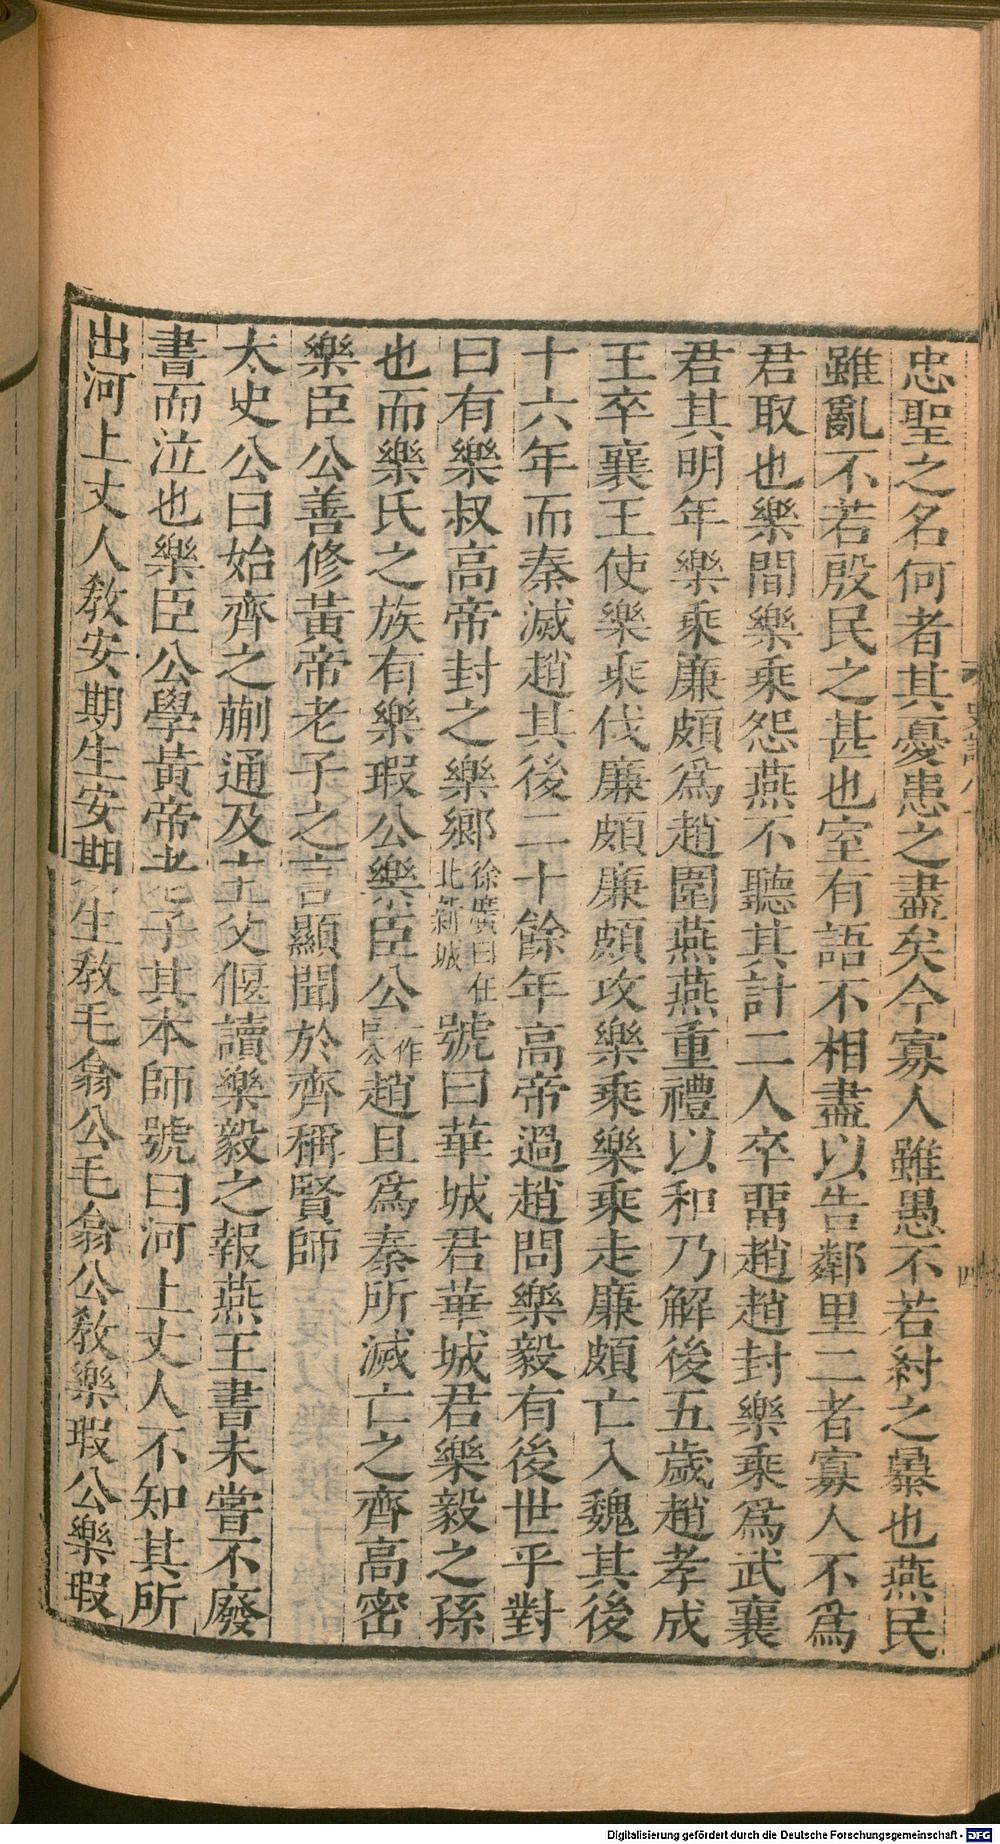 忠聖之名何者其憂患之盡矣今寡人雖愚不若紂之暴也燕民
雖亂不若殷民之甚也室有語不相盡以告鄰里二者寡人不為
君取也樂間樂乘怨燕不聽其計二人卒畱趙趙封樂乘為武襄
君其明年樂乘廉頗為趙圍燕燕重禮以和乃解後五歲趙孝成
王卒襄王使樂乘伐廉頗廉頗攻樂乘樂乘走廉頗亡入魏其後
十六年而秦滅趙其後二十餘年高帝過趙問樂毅有後世乎對
曰有樂叔高帝封之樂鄉徐廣曰在北新城號曰華城君華城君樂毅之孫
也而樂氏之族有樂瑕公樂臣公一作巨公趙且為秦所滅亡之齊高密
樂臣公善修黃帝老子之言顯聞於齊稱賢師
太史公曰始齊之蒯通及主父偃讀樂毅之報燕王書未嘗不廢
書而泣也樂臣公學黃帝老子其本師號曰河上丈人不知其所
出河上丈人教安期生安期生教毛翕公毛翕公教樂瑕公樂瑕
四
Digitalisierung gefördert durch die Deutsche Forschungsgemeinschaft - DFG